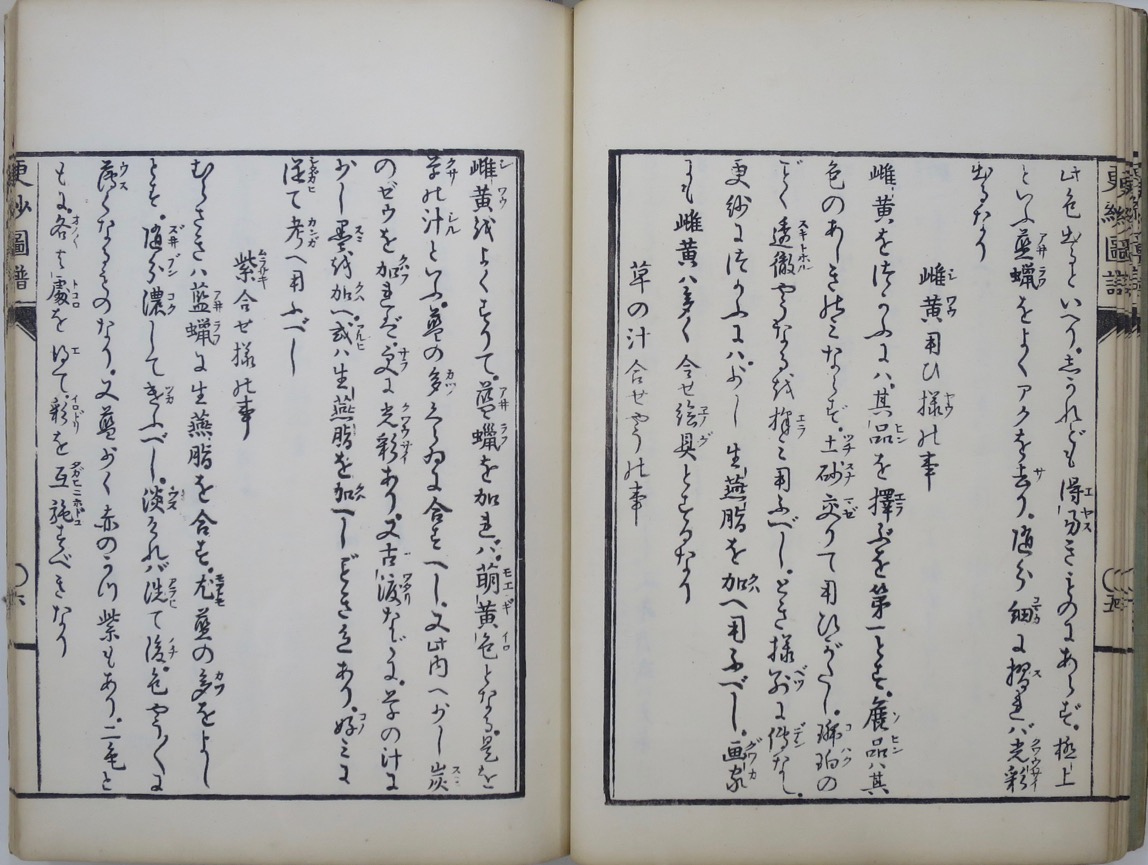 此色出るといへり。志かれども得易きものにあらず。極上
といふ藍蝋をよくアクを去り。随分細に摺れバ光彩
出るなり
雌黄用ひ様の事
雌黄をつかふにハ。其品を擇ぶを第一とす。麁品ハ其
色のあしきのミならず。土砂交りて用ひがたし。琥珀の
ごとく透徹やうなるを擇ミ用ふべし。とき様別に傳なし。
更紗につかふにハ。少し生燕脂を加へ用ふべし。画家
にも雌黄ハ多く合せ絵具とするなり
草の汁合せやうの事
雌黄をよくすりて。藍蝋を加れバ。萌黄色となる。是を
草の汁といふ。藍の多くるに合すへし。又此内へ少し炭
のゼウを加れバ。更に光彩あり。又古渡などに。草の汁に
少し墨を加へ。或ハ生燕脂を加へしごときもあり。好ミに
従て考へ用ふべし
紫合せ様の事
むらさきハ藍蝋に生燕脂を合す。尤藍の多をよし
とす。随分濃してきふべし。淡けれバ洗て後。色やうくに
薄くなるものなり。又藍少く赤のかつ紫もあり。二色と
もに。各其處を得て。彩を互施すべきなり
更紗圖譜
○五
更紗圖譜
○六